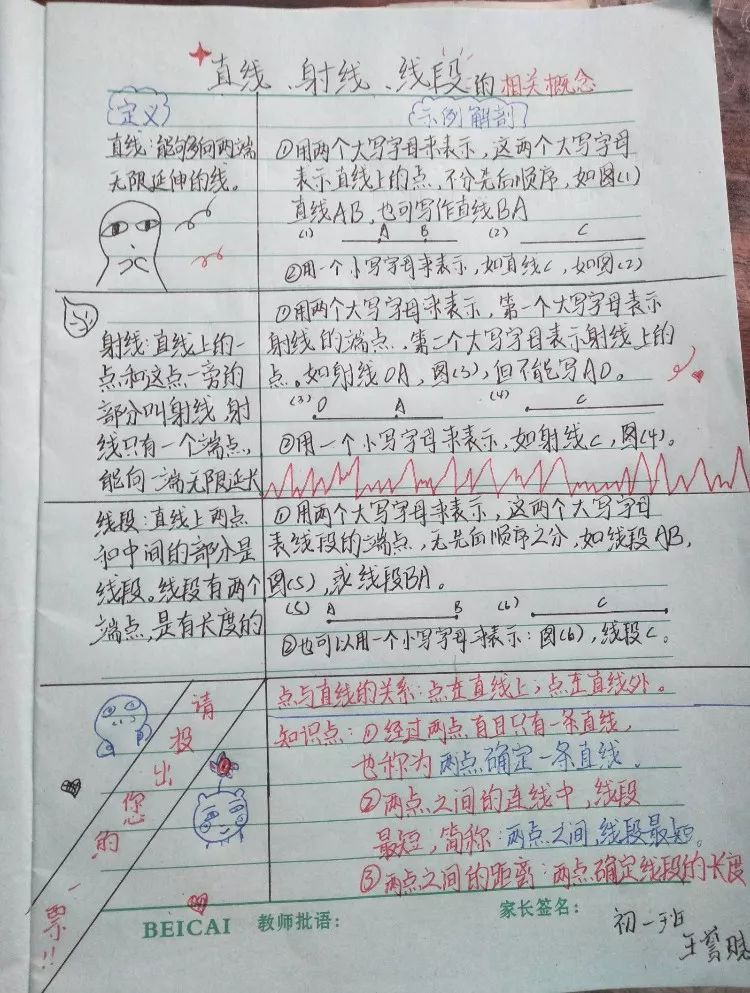 直线、射线、线段的相关概念
定义
示例解剖
直线:能够向两端
无限延伸的线。
①用两个大写字母来表示,这两个大写字母
表示直线上的点,不分先后顺序,如图(1)
直线AB,也可写作直线BA
(1) A B (2) C
②用一个小写字母来表示,如直线C,如图(2)
射线:直线上的一
点和这点一旁的
部分叫射线,射
线只有一个端点,
能向一端无限延长
①用两个大写字母来表示,第一个大写字母表示
射线的端点,第二个大写字母表示射线上的
点。如射线OA,图(3),但不能写AO。
(3) O A (4) C
②用一个小写字母来表示,如射线C,图(4)。
线段:直线上两点
和中间的部分是
线段。线段有两个
端点,是有长度的
①用两个大写字母来表示,这两个大写字母
表线段的端点,无先后顺序之分,如线段AB,
图(5),或线段BA。
(5) A B (6) C
②也可以用一个小写字母来表示:图(6),线段C。
请投出您的一票!!
点与直线的关系:点在直线上;点在直线外。
知识点:①经过两点有且只有一条直线,
也称为两点确定一条直线。
②两点之间的连线中,线段
最短,简称:两点之间,线段最短。
③两点之间的距离:两点确定线段的长度
BEICAI 教师批语: 家长签名:
初一班
王晓